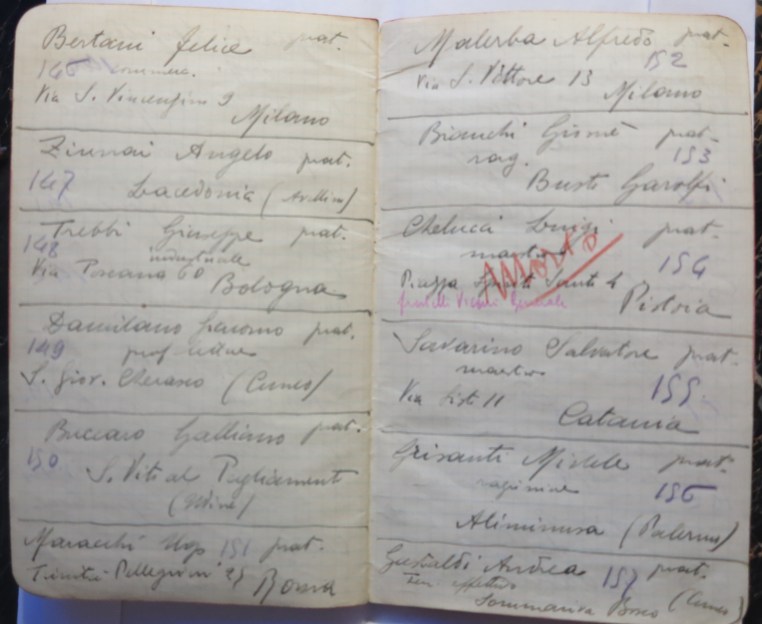 Bertani Felice prat.
146 comme.
Via S. Vincenzino 9
Milano
Angelo prat.
147 Lacedonia (Avellino)
Trebbi Giuseppe prat.
148 industriale
Via Toscana 60 Bologna
Damilano Giacomo prat.
149 prof.
S. Giov. Cherasco (Cuneo)
Buccaro Galliano prat.
150 S. Vito al Tagliamento
(Udine)
Maracchi Ugo 151 prat.
Trinità Pellegrini Roma
Malerba Alfredo prat.
152
Via S. Vittore 13 Milano
Bianchi Giosuè prat.
rag. 153
Busto Garolfi
Chelucci Luigi prat.
maestro 154
Morto
Piazza Spirito Santo 4
fratelli Vicario Generale Pistoia
Savarino Salvatore prat.
maestro 155
Via 11
Catania
Grisanti Michele prat.
ragioniere 156
Aliminusa (Palermo)
Gastaldi Andrea 157 prat.
Ten. effettivo
Sommariva Bosco (Cuneo)